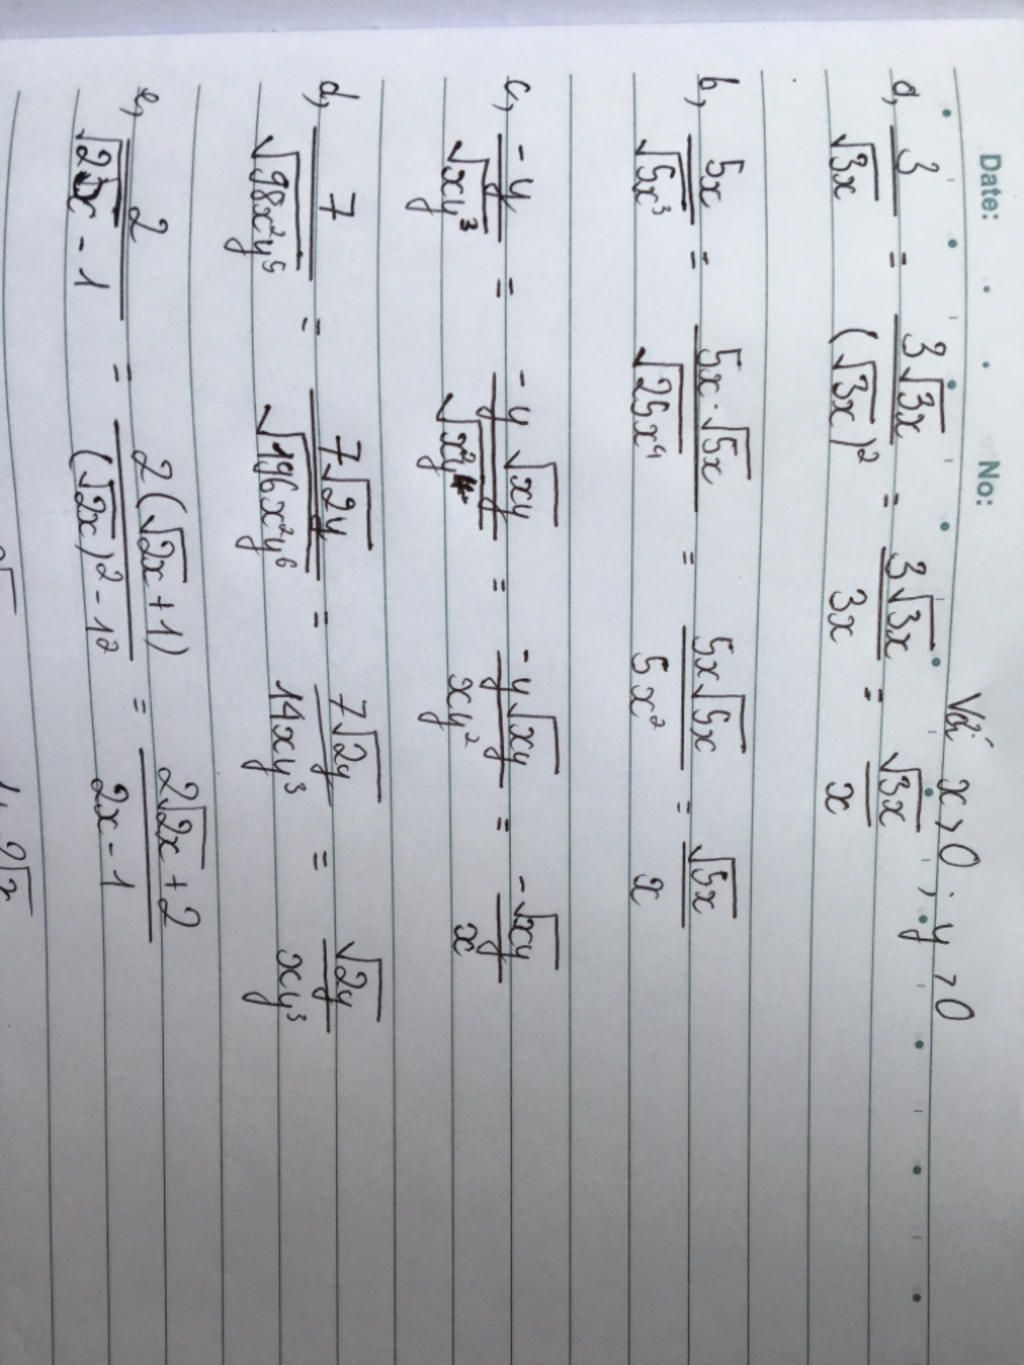 Date: No:
Với x > 0 ; y > 0
a, 3/√(3x) = 3√(3x)/(√(3x))² = 3√(3x)/3x = √(3x)/x
b, 5x/√(5x³) = 5x·√(5x)/√(25x⁴) = 5x√(5x)/5x² = √(5x)/x
c, -y/√(xy³) = -y√(xy)/√(x²y⁴) = -y√(xy)/xy² = -√(xy)/x
d, 7/√(98x²y⁵) = 7√(2y)/√(196x²y⁶) = 7√(2y)/14xy³ = √(2y)/xy³
e, 2/(√(2x) - 1) = 2(√(2x) + 1)/((√(2x))² - 1²) = (2√(2x) + 2)/(2x - 1)